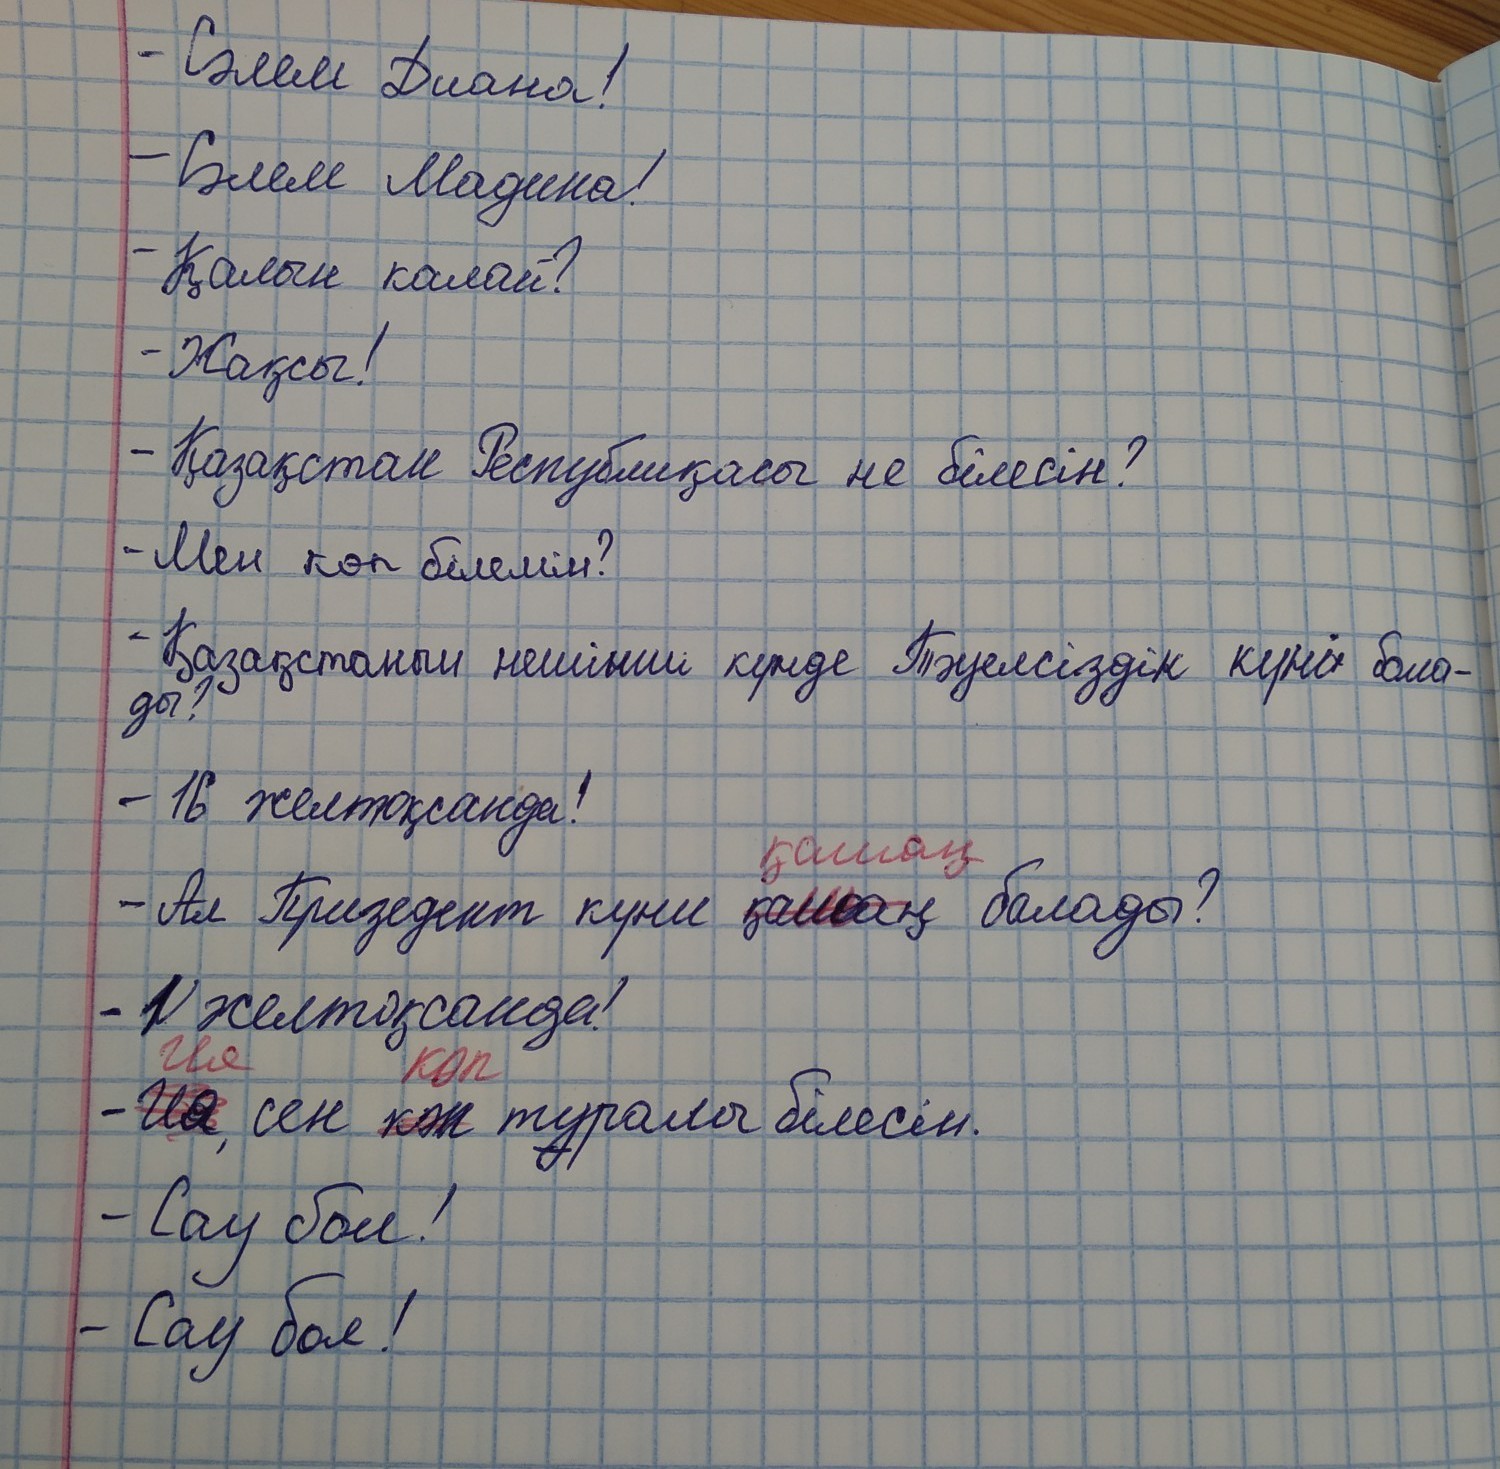 - Сәлем Диана!
- Сәлем Мадина!
- Қалын калай?
- Жақсы!
- Қазақстан Республиқасы не білесін?
- Мен көп білемін?
- Қазақстанын нешінши күнде Тәуелсіздін күні бола-
ды?
- 16 желтоқсанда!
қашаң
- Ал Призедент куни қашаң балады?
- 1 желтоқсанда!
Ия көп
- Иа, сен көп туралы білесін.
- Сау бол!
- Сау бол!